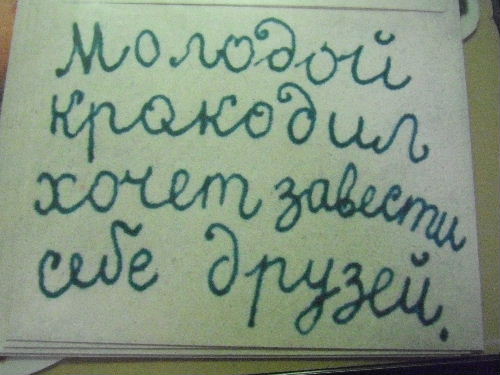 Молодой
крокодил
хочет завести
себе друзей.